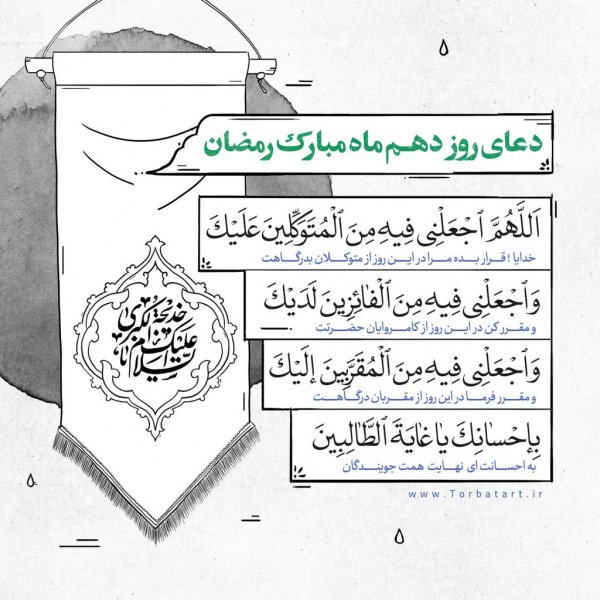 دعای روز دهم ماه مبارک رمضان
اَللَّهُمَّ ٱجْعَلْنِی فِیهِ مِنَ ٱلْمُتَوَکِّلِینَ عَلَیْكَ
خدایا ! قرار بده مرا در این روز از متوکلان بدرگاهت
وَٱجْعَلْنِی فِیهِ مِنَ ٱلْفَائِزِینَ لَدَیْكَ
و مقرر کن در این روز از کامروایان حضرتت
وَٱجْعَلْنِی فِیهِ مِنَ ٱلْمُقَرَّبِینَ إِلَیْكَ
و مقرر فرما در این روز از مقربان درگاهت
بِإِحْسَانِكَ یَا غَایَةَ ٱلطَّالِبِینَ
به احسانت ای نهایت همت جویندگان
www.Torbatart.ir
السلام علیک یا خدیجة الکبری